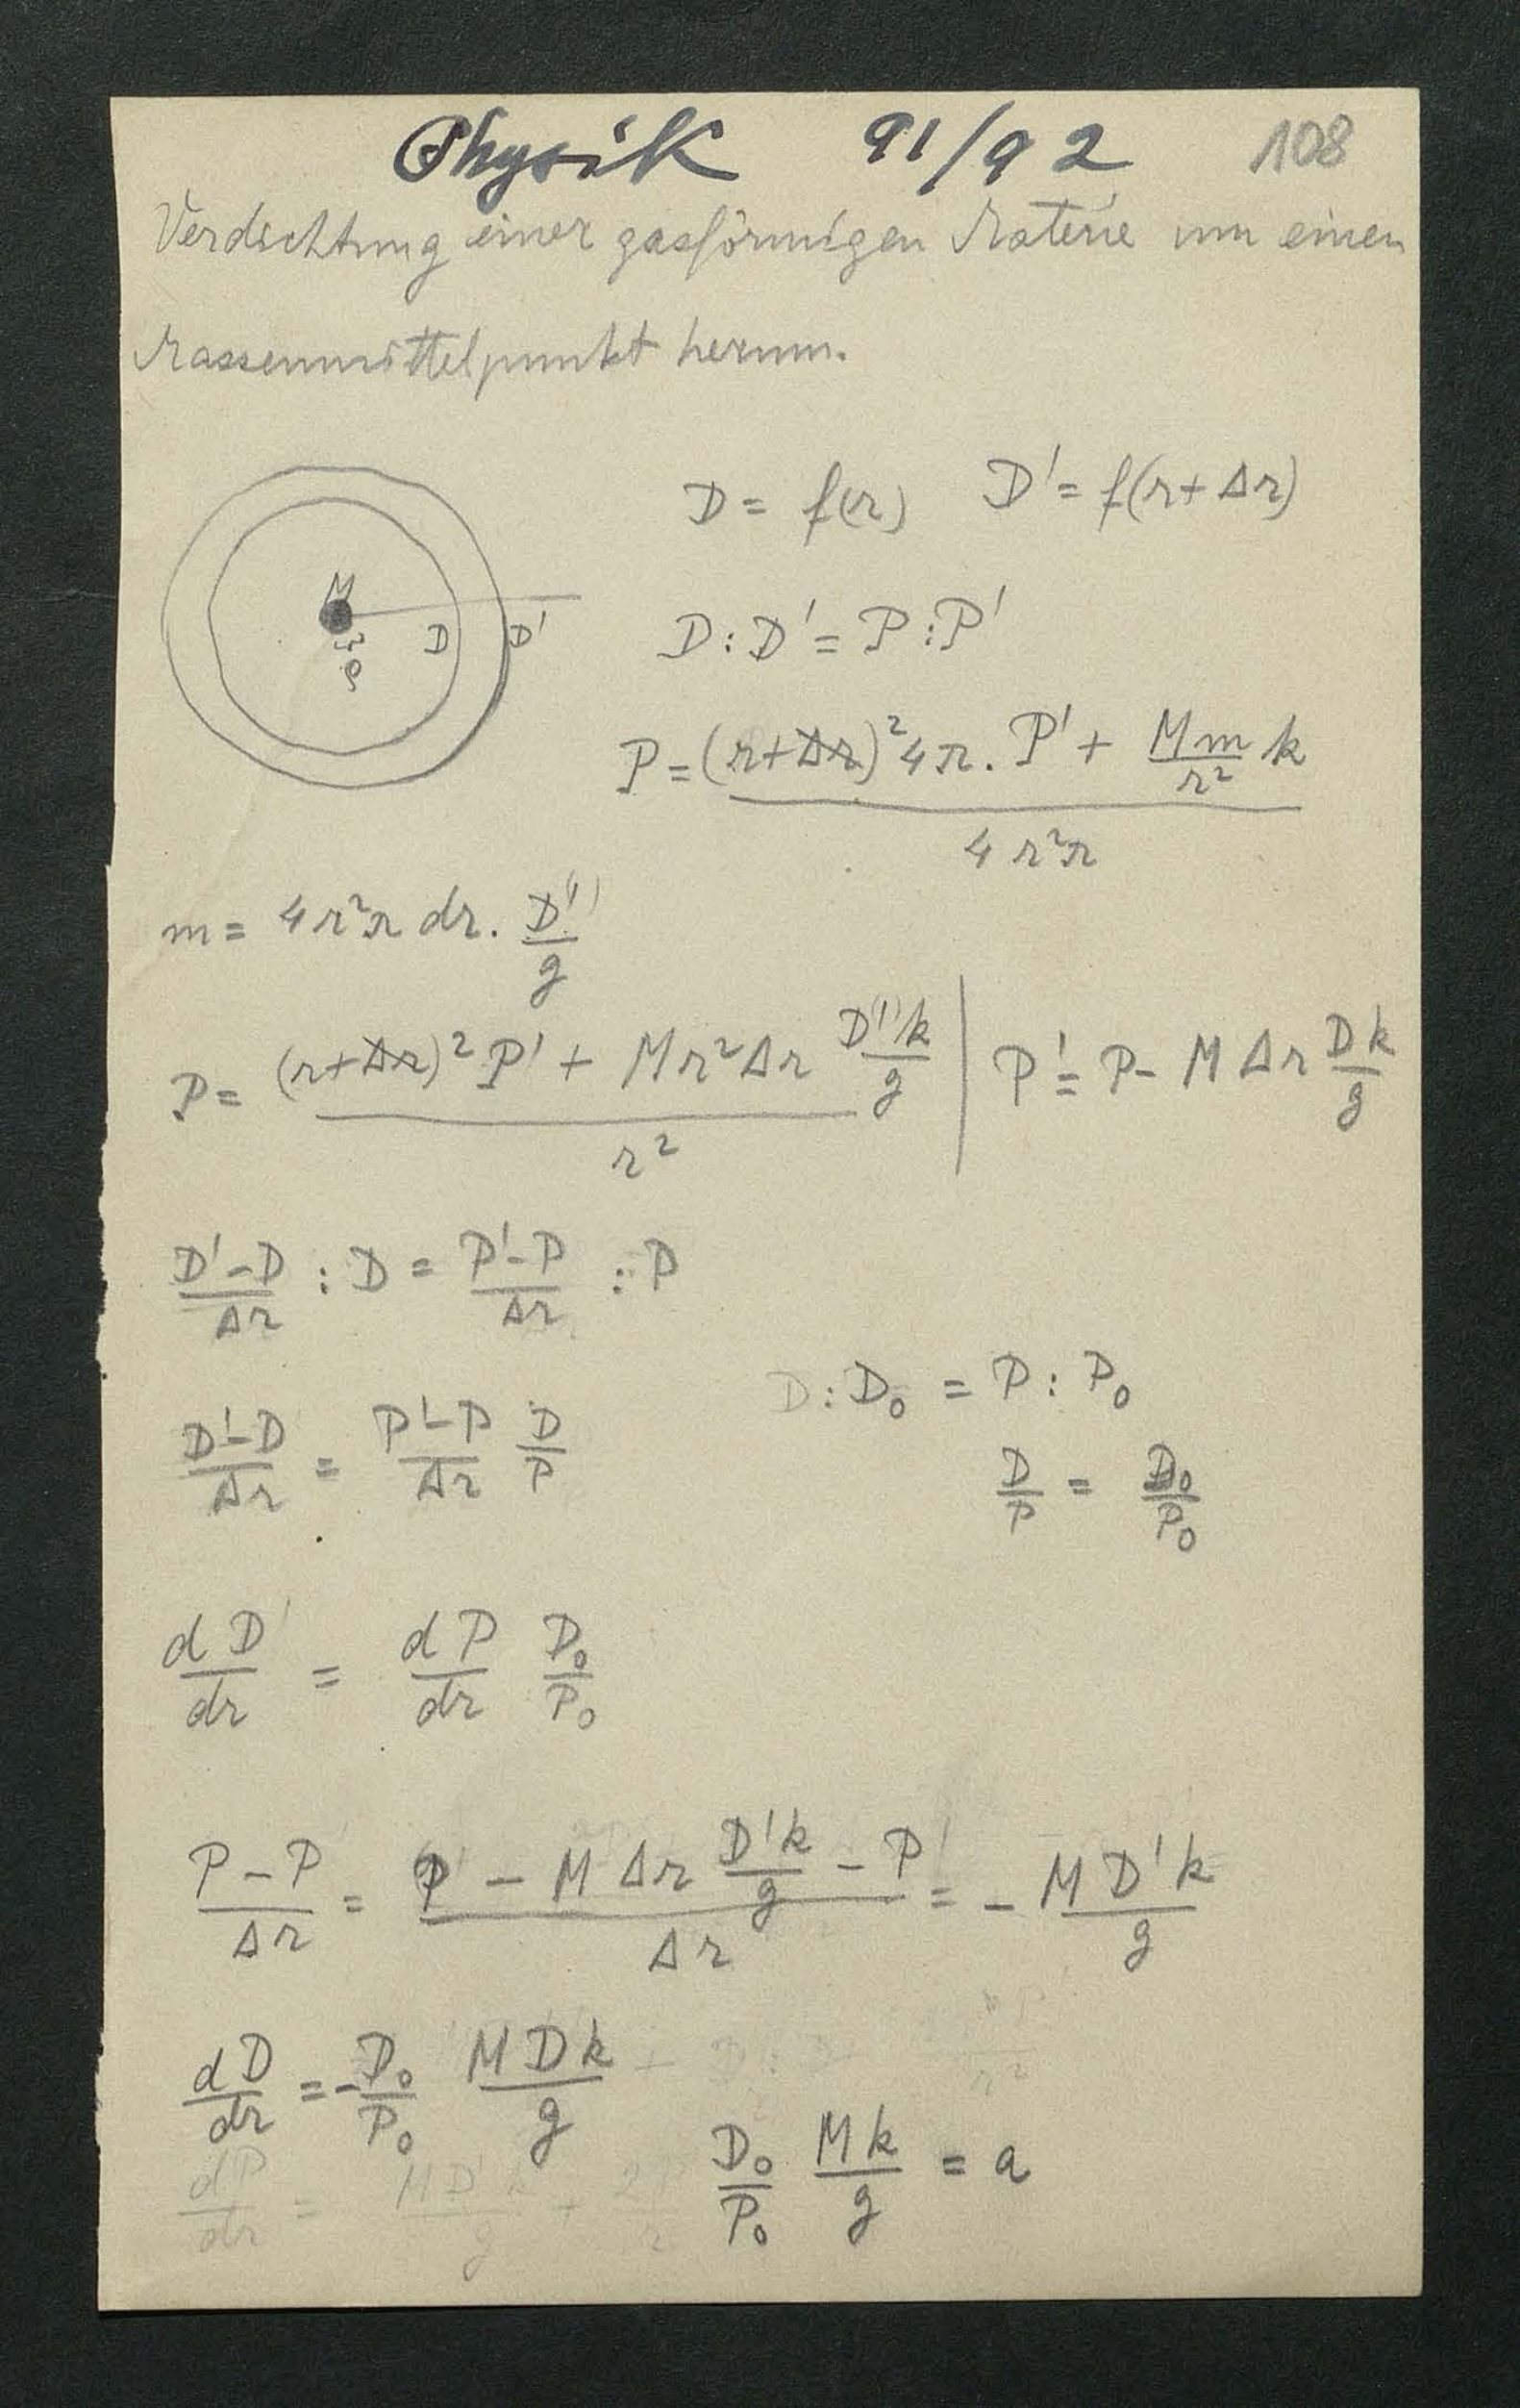 Physik 91/92 108
Verdichtung einer gasförmigen Materie um einen
Massenmittelpunkt herum.
D = f(r) D' = f(r+Δr)
M
D D'
ρ
D : D' = P : P'
P = ((r+Δr)² 4π . P' + (Mm/r²) k) / 4r²π
m = 4r²π dr . D(')/g
P = ((r+Δr)² P' + M r² Δr D(')k/g) / r² | P' = P - M Δr Dk/g
(D'-D)/Δr : D = (P'-P)/Δr : P
D : D₀ = P : P₀
(D'-D)/Δr = (P'-P)/Δr D/P
D/P = D₀/P₀
dD'/dr = dP/dr D₀/P₀
(P-P)/Δr = (P' - M Δr D'k/g - P')/Δr = - MD'k/g
dD/dr = - D₀/P₀ MDk/g
D₀/P₀ Mk/g = a
dP/dr = MD'k/g + 2P/r